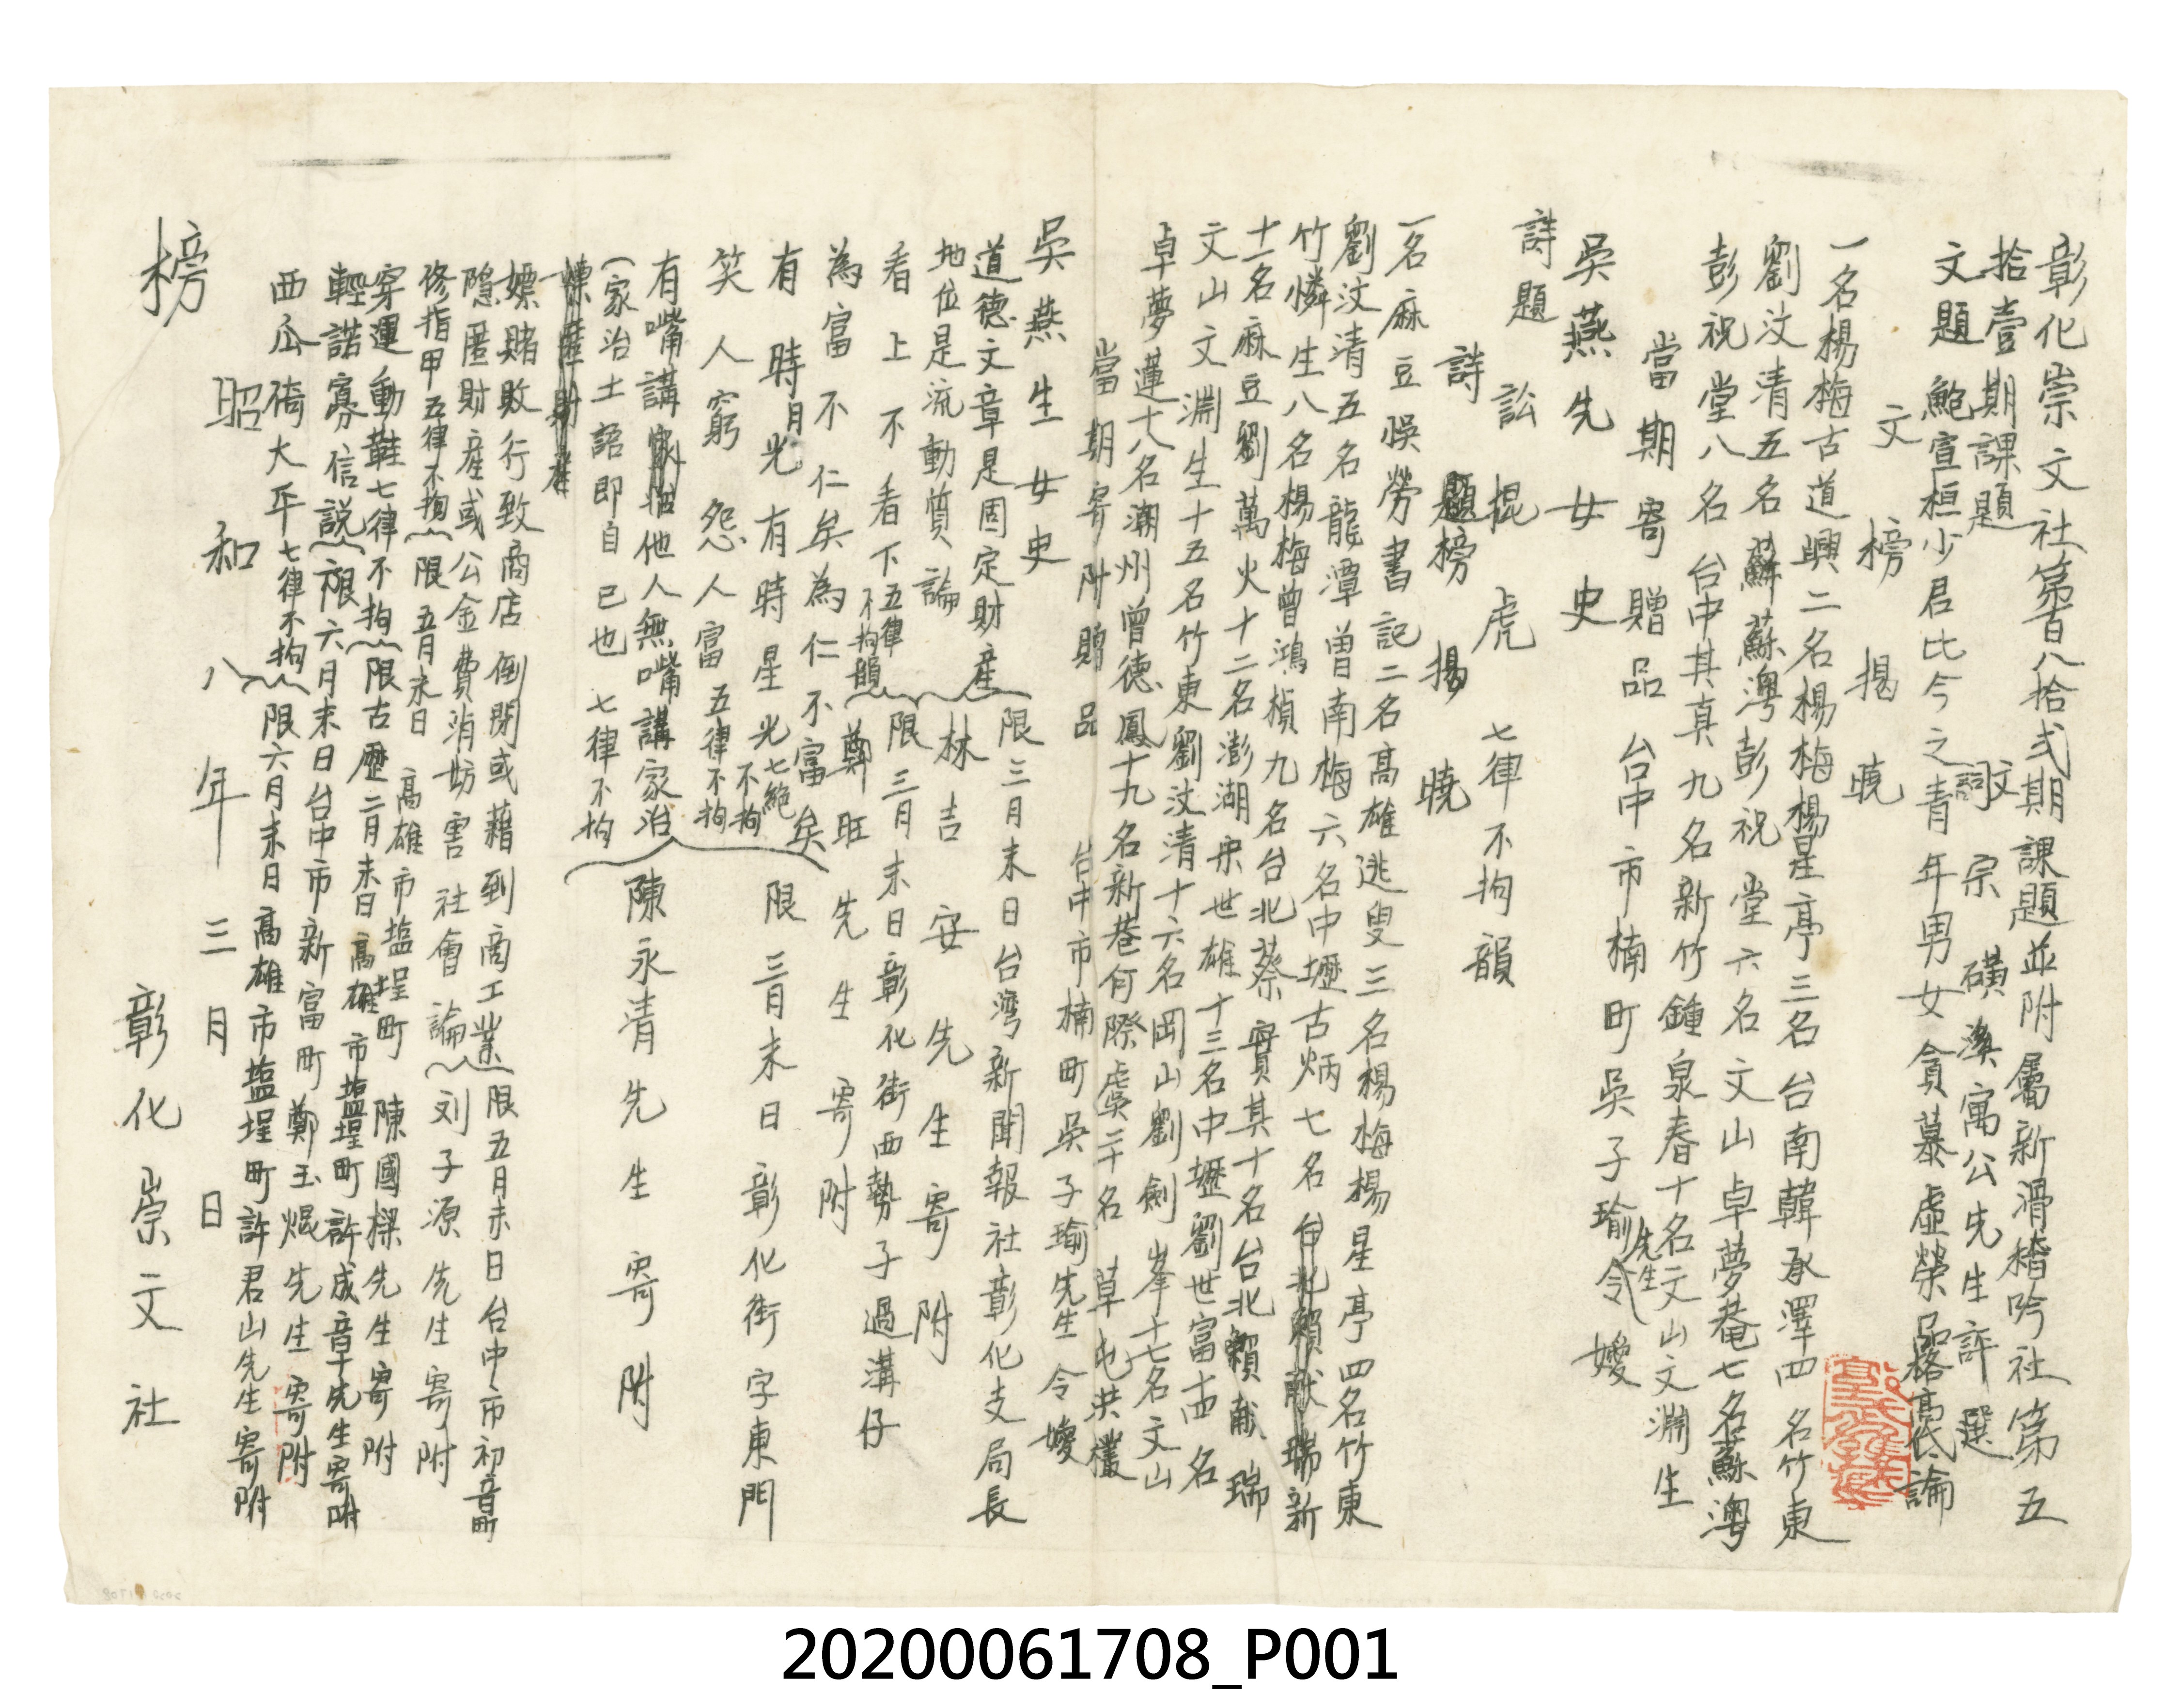 彰化崇文社第百八拾弍期課題並附屬新滑稽吟社第五
拾壹期課題 文詞宗 磺溪寓公先生評選
文題 鮑宣桓少君比今之青年男女貪慕虛榮品格高低論
文榜揭曉
一名楊梅古道興二名楊梅楊星亭三名台南韓承澤四名竹東
劉汶清五名蘇澳彭祝堂六名文山卓夢菴七名蘇澳
彭祝堂八名台中其真九名新竹鍾泉春十名文山文淵生
當期寄贈品 台中市楠町吳子瑜先生令嬡
吳燕先女史
詩題 訟棍虎 七律不拘韻
詩題榜揚曉
一名麻豆悞勞書記二名高雄逃叟三名楊梅楊星亭四名竹東
劉汶清五名龍潭曾南梅六名中壢古炳七名台北賴献瑞新
竹憐生八名楊梅曾鴻楨九名台北蔡寶其十名台北賴献瑞
十一名麻豆劉萬火十二名澎湖宋世雄十三名中壢劉世富十四名
文山文淵生十五名竹東劉汶清十六名岡山劉劍峯十七名文山
卓夢蓮十八名潮州曾德鳳十九名新巷何際虞二十名草屯洪欉
當期寄附贈品 台中市楠町吳子瑜先生令嬡
吳燕生女史
道德文章是固定財產 限三月末日台湾新聞報社彰化支局長
地位是流動質論 林吉安先生寄附
看上不看下五律不拘韻 限三月末日彰化街西勢子過溝仔
為富不仁矣為仁不富矣 鄭旺先生寄附
有時月光有時星光七絕不拘 限三月末日彰化街字東門
笑人窮怨人富五律不拘
有嘴講他人無嘴講家治 陳永清先生寄附
(家治土語即自己也 七律不拘
嫖賭敗行致商店倒閉或藉到商工業 限五月末日台中市初音町
隱匿財產或公金費消妨害社會論 刘子源先生寄附
修指甲五律不拘 限五月末日 高雄市塩埕町 陳國樑先生寄附
穿運動鞋七律不拘 限古歷二月末日高雄市塩埕町許成音先生寄附
輕諾寡信説 限六月末日台中市新富町鄭玉焜先生寄附
西瓜倚大平七律不拘 限六月末日高雄市塩埕町許君山先生寄附
昭和八年三月 日
榜 彰化崇文社
20200061708_P001